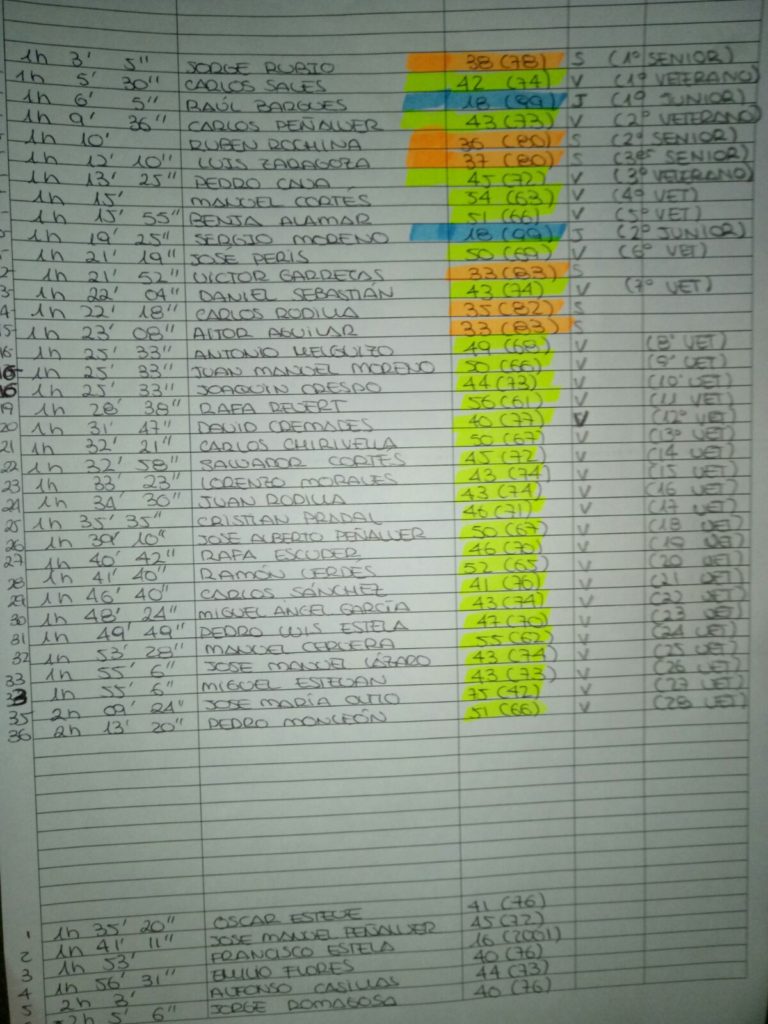 1h 3' 5" JORGE RUBIO 38 (78) S (1º SENIOR)
1h 5' 30" CARLOS SALES 42 (74) V (1º VETERANO)
1h 6' 5" RAÚL BARGUES 18 (99) J (1º JUNIOR)
1h 9' 36" CARLOS PEÑALVER 43 (73) V (2º VETERANO)
1h 10' RUBEN ROCHINA 36 (80) S (2º SENIOR)
1h 12' 10" LUIS ZARAGOZA 37 (80) S (3er SENIOR)
1h 13' 25" PEDRO CAJA 45 (72) V (3º VETERANO)
1h 15' MANUEL CORTÉS 54 (63) V (4º VET)
1h 15' 55" BENJA ALAMAR 51 (66) V (5º VET)
1h 19' 25" SERGIO MORENO 18 (99) J (2º JUNIOR)
1h 21' 19" JOSE PERIS 50 (69) V (6º VET)
2 1h 21' 52" VICTOR GARRETAS 33 (83) S
3 1h 22' 04" DANIEL SEBASTIÁN 43 (74) V (7º VET)
4 1h 22' 18" CARLOS RODILLA 35 (82) S
15 1h 23' 08" AITOR AGUILAR 33 (83) S
16 1h 25' 33" ANTONIO MELGUIZO 49 (68) V (8º VET)
16 1h 25' 33" JUAN MANUEL MORENO 50 (66) V (9º VET)
16 1h 25' 33" JOAQUIN CRESPO 44 (73) V (10º VET)
19 1h 28' 38" RAFA REVERT 56 (61) V (11 VET)
20 1h 31' 47" DAVID CREMADES 40 (77) V (12º VET)
21 1h 32' 21" CARLOS CHIRIVELLA 50 (67) V (13º VET)
22 1h 32' 58" SALVADOR CORTÉS 45 (72) V (14 VET)
23 1h 33' 23" LORENZO MORALES 43 (74) V (15 VET)
24 1h 34' 30" JUAN RODILLA 43 (74) V (16 VET)
25 1h 35' 35" CRISTIAN PRADAL 46 (71) V (17 VET)
26 1h 39' 10" JOSE ALBERTO PEÑALVER 50 (67) V (18 VET)
27 1h 40' 42" RAFA ESCUDER 46 (70) V (19 VET)
28 1h 41' 40" RAMÓN VERDES 52 (65) V (20 VET)
29 1h 46' 40" CARLOS SÁNCHEZ 41 (76) V (21 VET)
30 1h 48' 24" MIGUEL ANGEL GARCÍA 43 (74) V (22 VET)
31 1h 49' 49" PEDRO LUIS ESTELA 47 (70) V (23 VET)
32 1h 53' 28" MANUEL CERVERA 55 (62) V (24 VET)
33 1h 55' 6" JOSE MANUEL LÁZARO 43 (74) V (25 VET)
33 1h 55' 6" MIGUEL ESTEVAN 43 (73) V (26 VET)
35 2h 09' 24" JOSE MARÍA 75 (42) V (27 VET)
36 2h 13' 20" PEDRO MONLEÓN 51 (66) V (28 VET)
1 1h 35' 20" OSCAR ESTEVE 41 (76)
2 1h 41' 11" JOSE MANUEL PEÑALVER 45 (72)
3 1h 53' FRANCISCO ESTELA 16 (2001)
4 1h 56' 31" EMILIO FLORES 40 (76)
5 2h 3' ALFONSO CASILLAS 44 (73)
2h 5' 6" JORGE DOMAGOSA 40 (76)